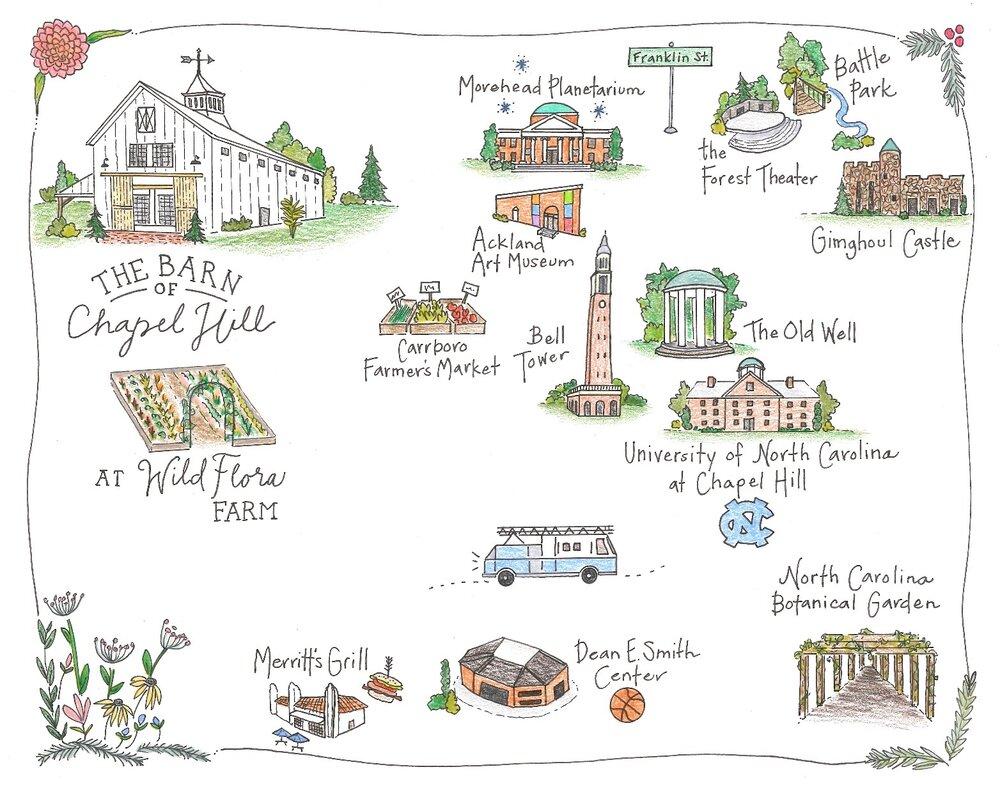 THE BARN
OF
Chapel Hill
AT Wild Flora
FARM
Morehead Planetarium
Franklin St.
Battle
Park
the
Forest Theater
Gimghoul Castle
Ackland
Art Museum
Carrboro
Farmer's Market
Bell
Tower
The Old Well
University of North Carolina
at Chapel Hill
NC
North Carolina
Botanical Garden
Merritt's Grill
Dean E. Smith
Center